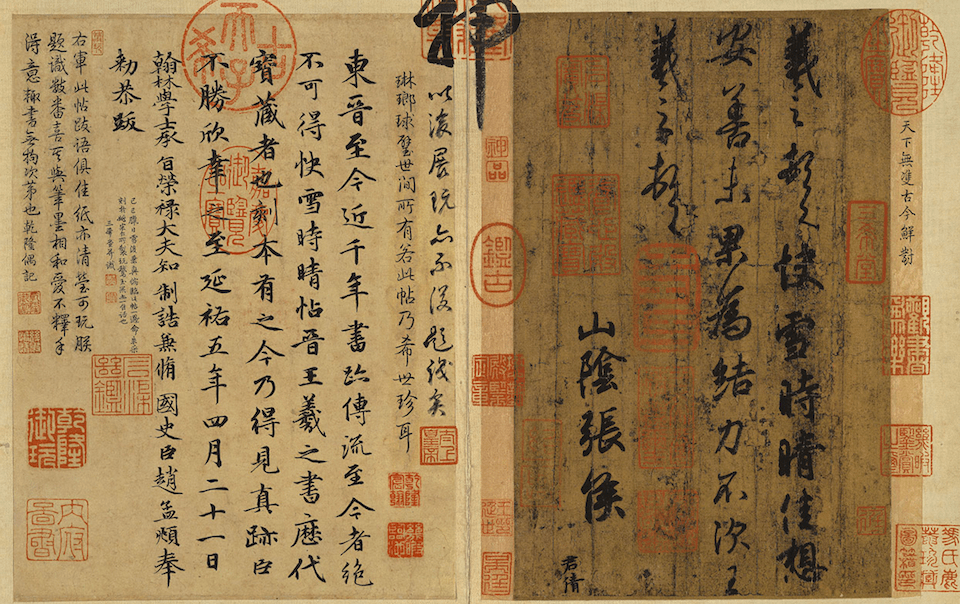 天下無雙古今鮮對
羲之頓首快雪時晴佳想
安善未果為結力不次王
羲之頓首
山陰張侯
君倩
神
神品
鑑古
以後展玩亦不復題識矣
琳瑯球璧世間所有若此帖乃希世珍耳
東晉至今近千年書跡傳流至今者絕
不可得快雪時晴帖晉王羲之書歷代
寶藏者也刻本有之今乃得見真跡臣
不勝欣幸之至延祐五年四月二十一日
翰林學士承旨榮祿大夫知制誥兼脩國史臣趙孟頫奉
勅恭跋
右軍此帖跋語俱佳紙亦清瑩可玩朕
題識數番喜其與筆墨相和愛不釋手
得意輒書無拘次第也乾隆偶記
三希堂
乾隆御玩